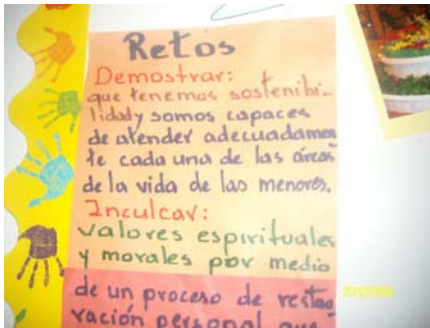 Retos
Demostrar:
que tenemos sostenibi-
lidad y somos capaces
de atender adecuadamen
te cada una de las áreas
de la vida de las menores.
Inculcar:
valores espirituales
y morales por medio
de un proceso de restau
ración personal que